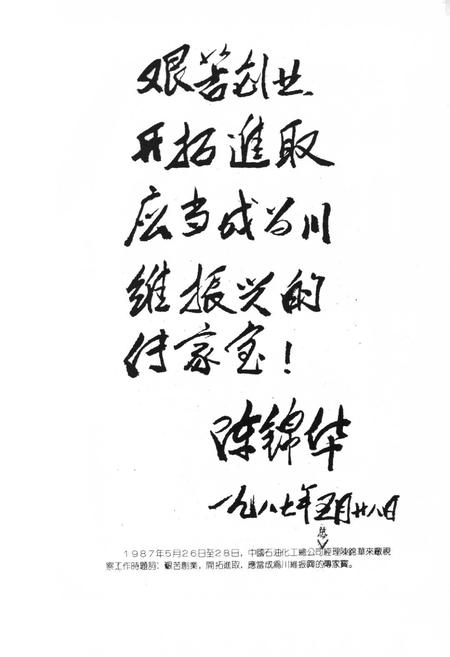 艰苦创业
开拓進取
应当成为川
維振兴的
传家宝！
陈锦华
一九八七年五月廿八日
总
1987年5月26日至28日，中國石油化工總公司經理陳錦華來廠視
察工作時題詞：艱苦創業，開拓進取，應當成爲川維振興的傳家寶。